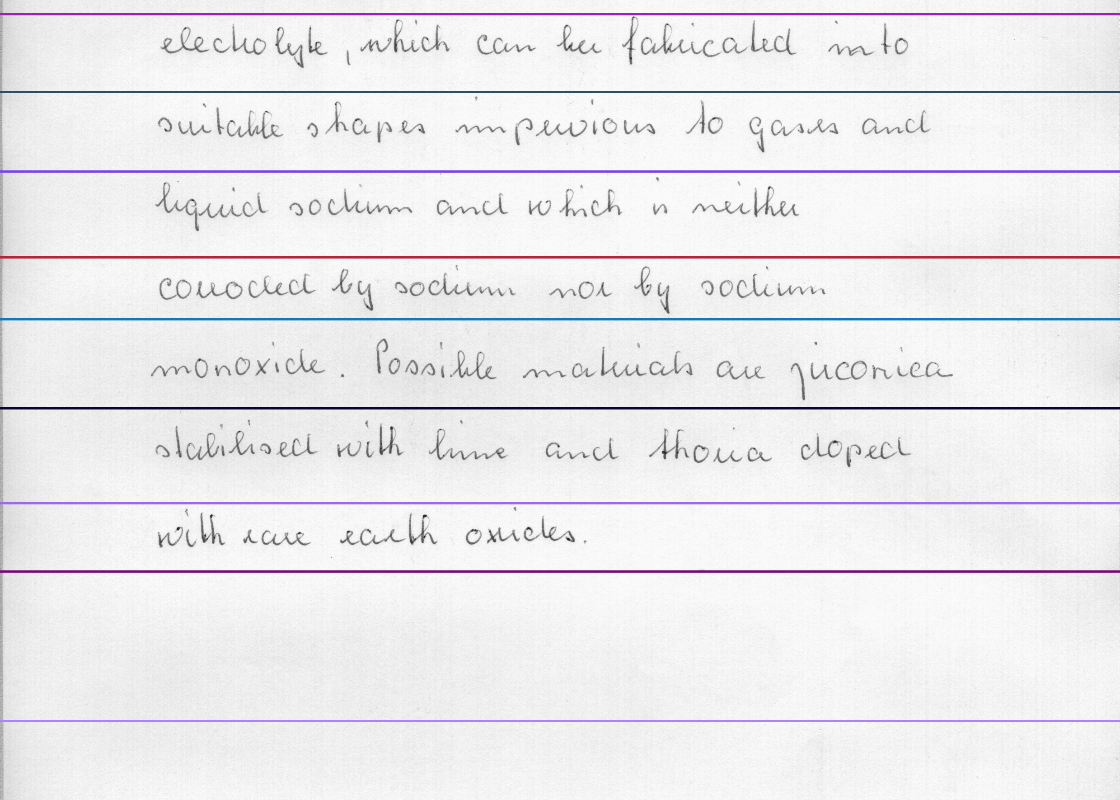 electrolyte, which can be fabricated into
suitable shapes impervious to gases and
liquid sodium and which is neither
corroded by sodium nor by sodium
monoxide. Possible materials are zirconica
stabilised with lime and thoria doped
with rare earth oxides.